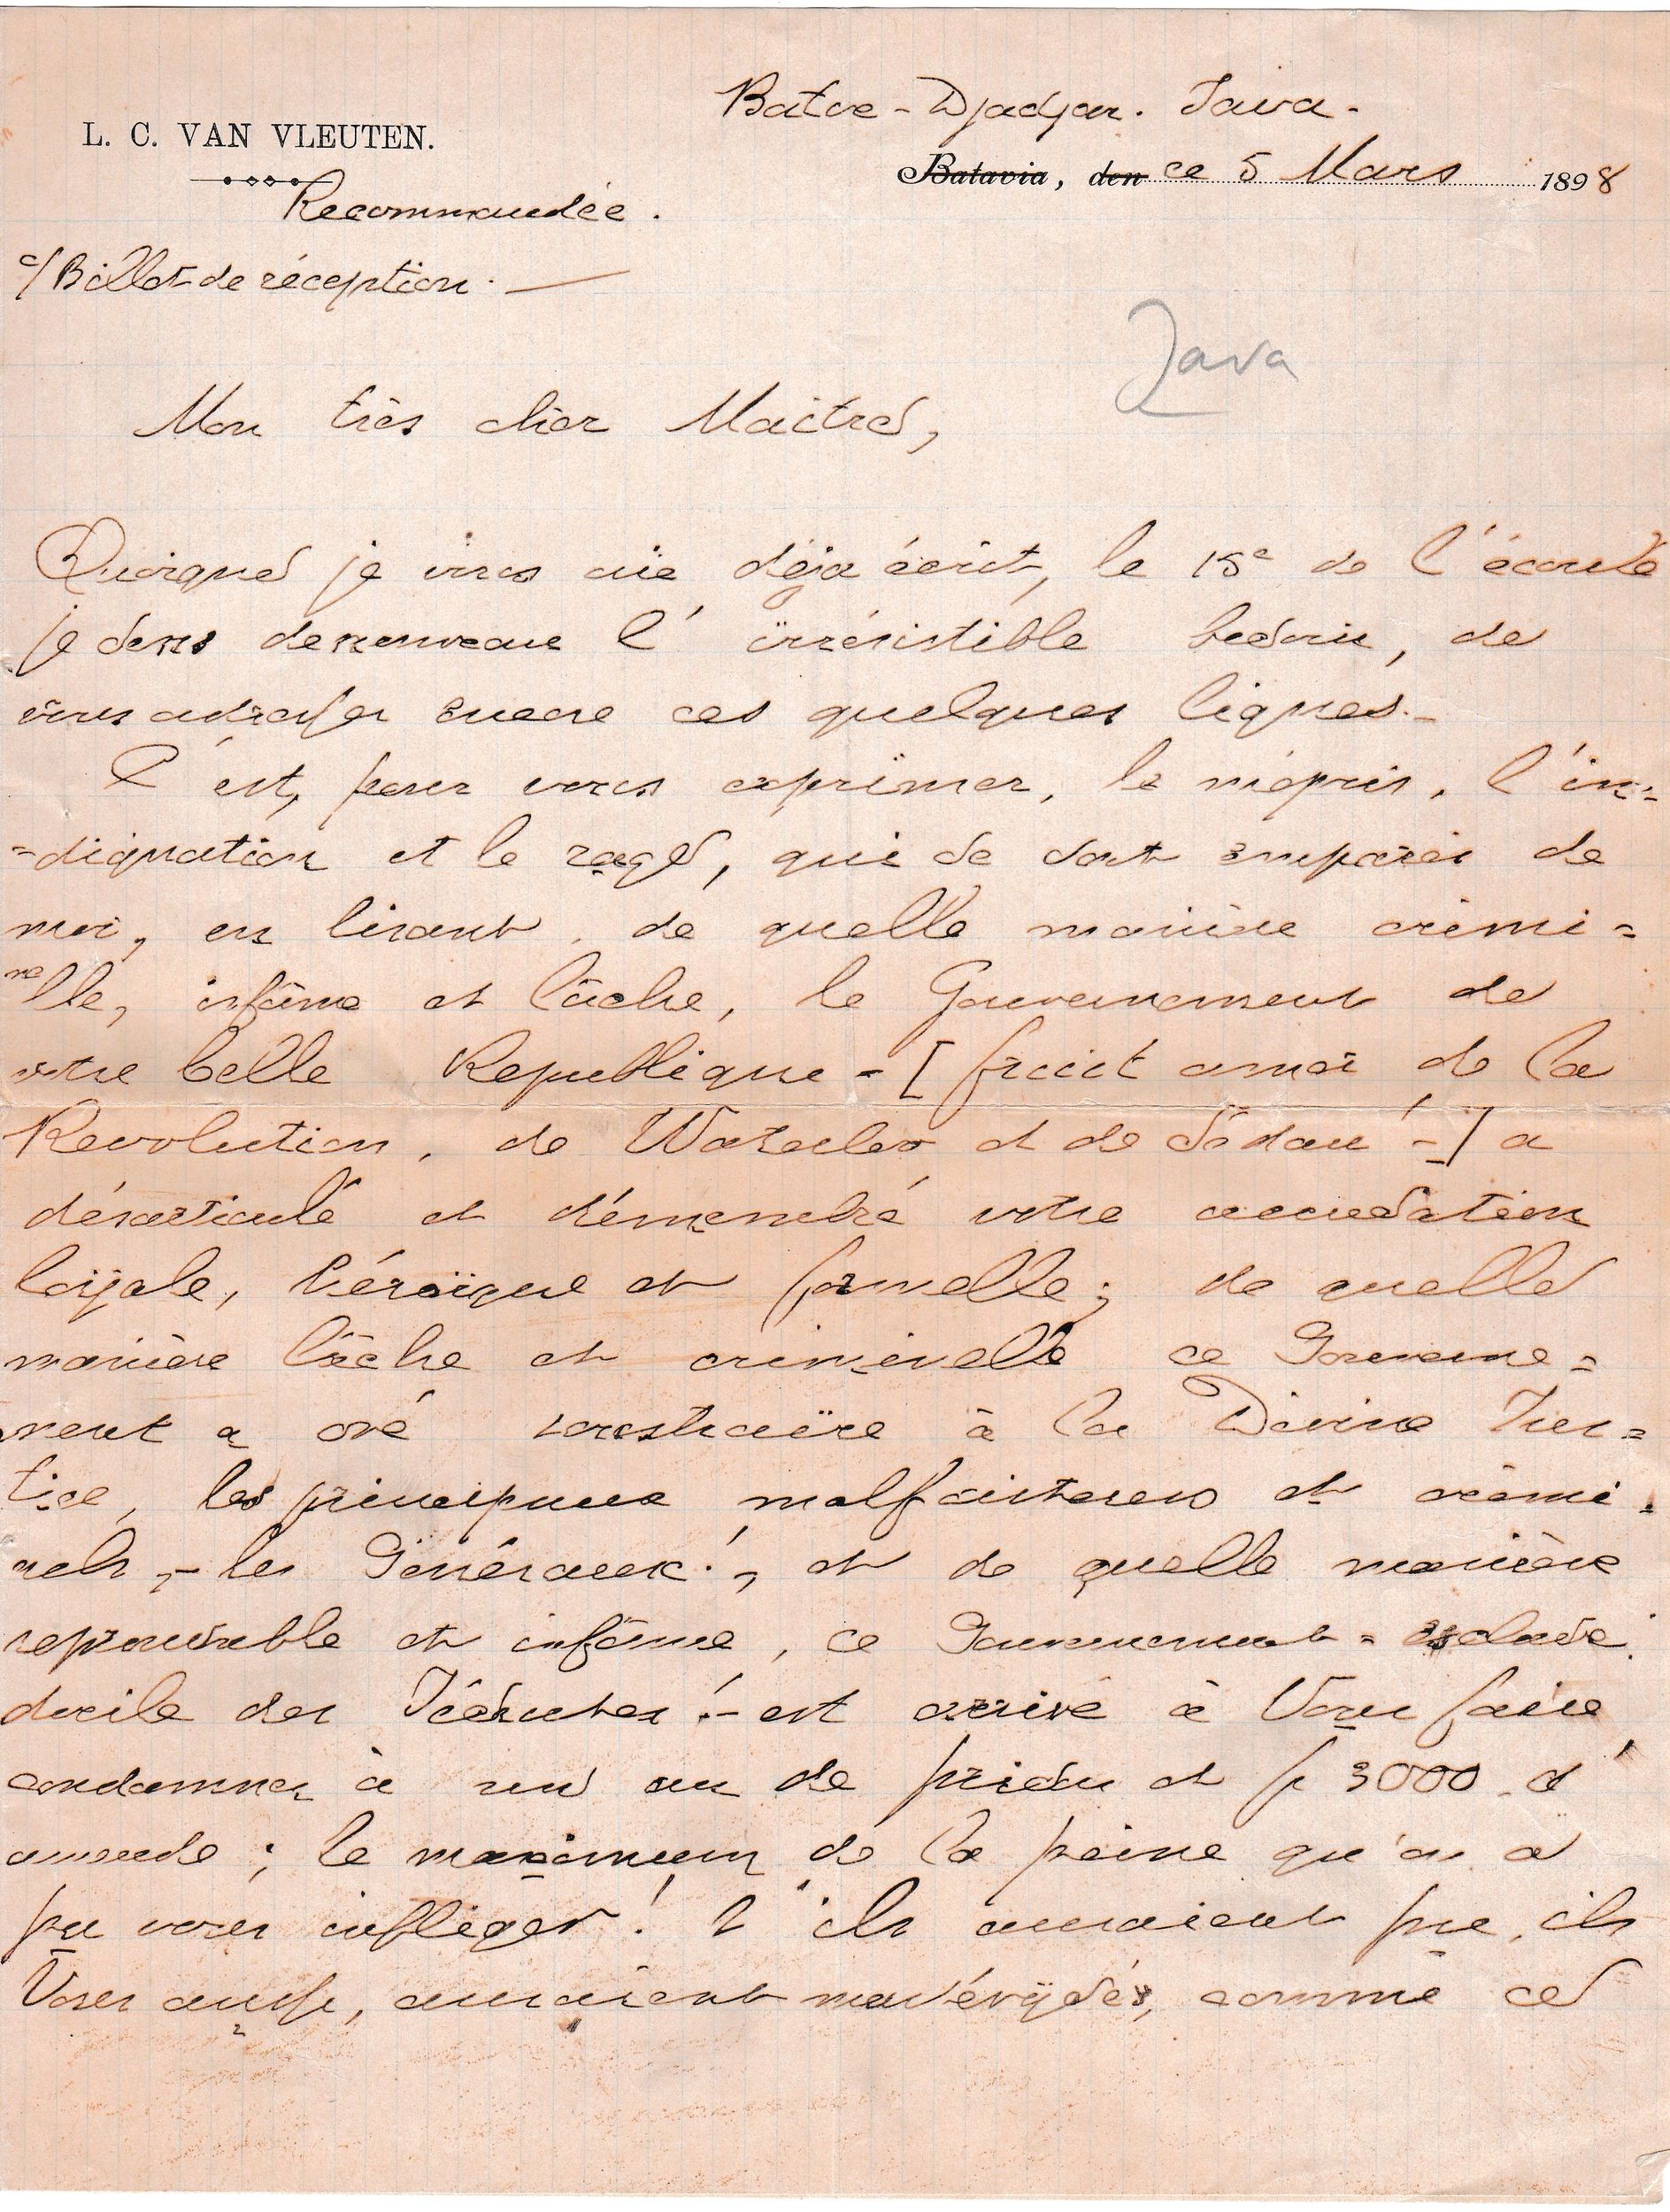 Batoe-Djadjar. Java.
L. C. VAN VLEUTEN.
Batavia, den ce 5 Mars 1898
Recommandée.
c/ Billet de réception. —
Java
Mon très cher Maître,
Quoique je vous aie déja écrit, le 15e de l'écoulé
je sens de nouveau l'irrésistible besoin, de
vous adresser encore ces quelques lignes.-
C'est, pour vous exprimer, le mépris, l'in=
=dignation et le rage, qui se sont emparés de
moi, en lisant, de quelle manière crimi=
nelle, infâme et lâche, le Gouvernement de
votre belle Republique - [fruit amer de la
Revolution, de Waterloo et de Sédan! -] a
désarticulé et démembré votre accusation
loyale, héroïque et formelle; de quelle
manière lâche et criminelle ce Gouverne=
ment a osé soustraire à la Divine Jus=
tice, les principaux malfaiteurs et crimi=
nels, - les Généraux!, et de quelle manière
infâme, ce Gouvernement = esclave
docile des Jésuites! - est arrivé à Vous faire
condamner à un an de prison et fr 3000 d'
amende; le maximum de la peine qu'on a
pu vous infliger! S'ils auraient pu, ils
Vous aussi, auraient comme ce